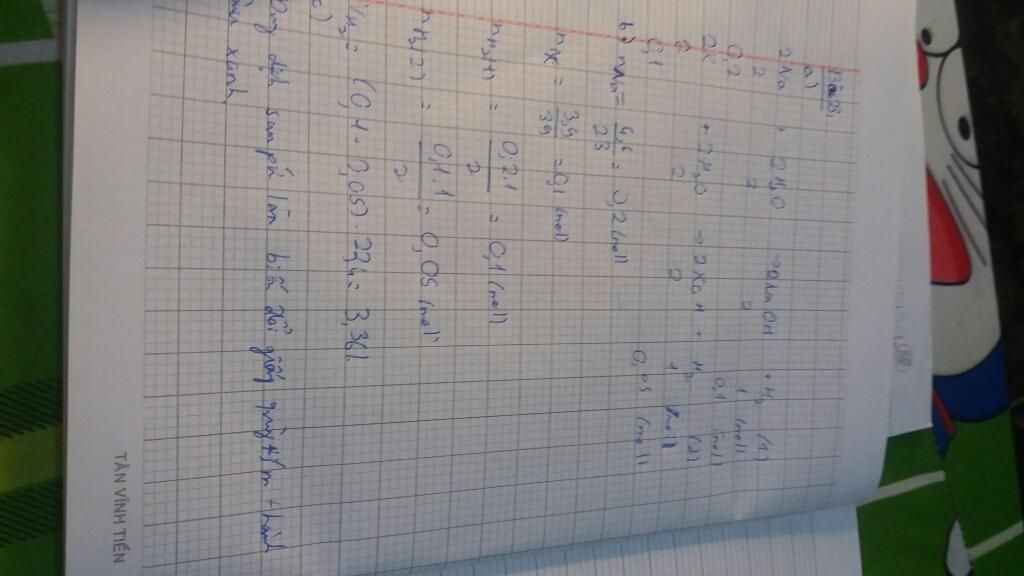 Bài 28:
a)
2Na + 2H₂O → 2NaOH + H₂ (1)
2 2 2 1 (mol)
0,2 0,1 (mol)
2K + 2H₂O → 2KOH + H₂ (2)
2 2 2 1 (mol)
0,1 0,05 (mol)
b) nNa = 4,6/23 = 0,2 (mol)
nK = 3,9/39 = 0,1 (mol)
nH₂(1) = 0,2.1/2 = 0,1 (mol)
nH₂(2) = 0,1.1/2 = 0,05 (mol)
VH₂ = (0,1 + 0,05) . 22,4 = 3,36l
c)
Dung dịch sau pứ làm biến đổi giấy quỳ tím thành
màu xanh
TÂN VĨNH TIẾN